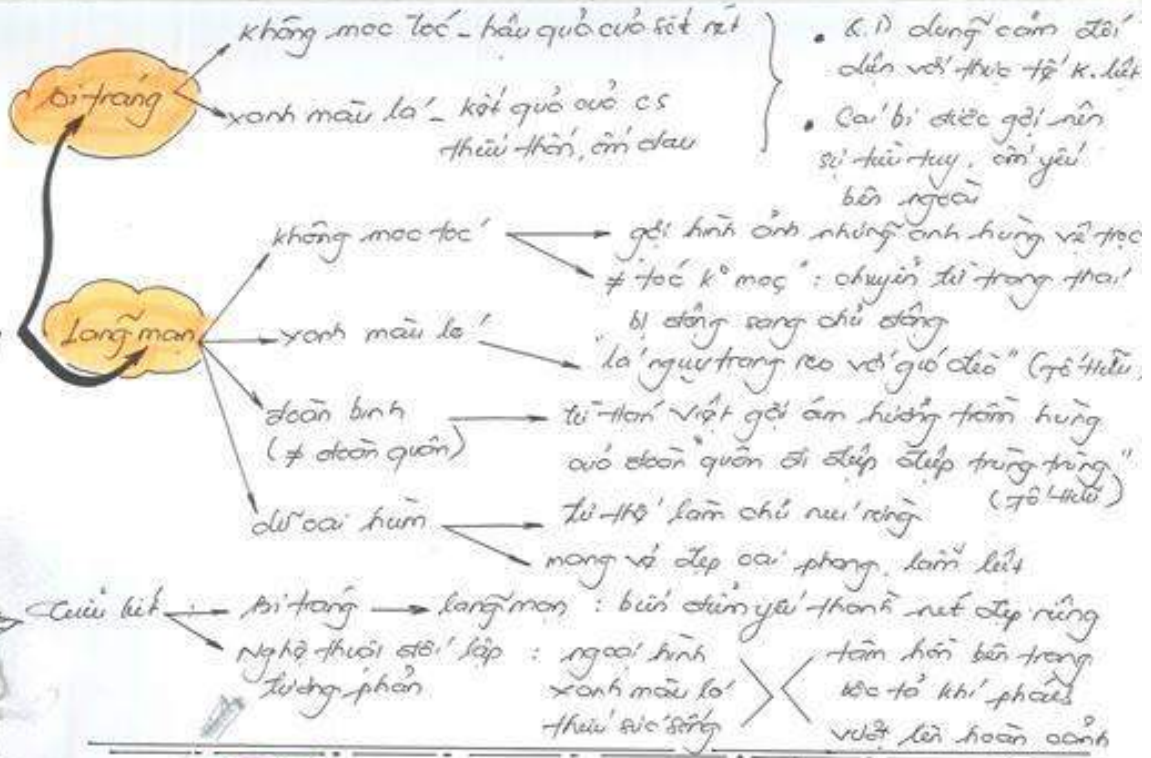 Bi tráng
không mọc tóc - hậu quả của sốt rét
xanh màu lá - kết quả của cs
thiếu thốn, ốm đau
• Q.D dũng cảm đối
diện với thực tế k.liệt
• Cái bi được gợi nên
sự tiều tụy, ốm yếu
bên ngoài
Lãng mạn
không mọc tóc
gợi hình ảnh những anh hùng vệ trọc
≠ tóc k° mọc": chuyển từ trạng thái
bị động sang chủ động
xanh màu lá
"lá ngụy trang reo với gió đèo" (Tố Hữu)
đoàn binh
(≠ đoàn quân)
từ Hán Việt gợi âm hưởng trầm hùng
của đoàn "quân đi điệp điệp trùng trùng"
(Tố Hữu)
dữ oai hùm
tư thế làm chủ núi rừng
mang vẻ đẹp oai phong, lẫm liệt
Tiểu kết
Bi tráng → lãng mạn : biến điểm yếu thành nét đẹp riêng
Nghệ thuật đối lập : ngoại hình
tương phản
xanh màu lá
thiếu sức sống
tâm hồn bên trong
bộc tả khí phách
vượt lên hoàn cảnh